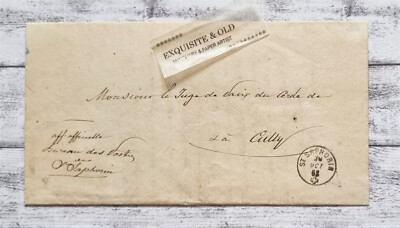 EXQUISITE & OLD
& PAPER ARTIST
Monsieur le Juge de Paix du Cercle de
à Cully
aff officielle
bureau des Postes
de
St Saphorin
ST SAPHORIN
OCT